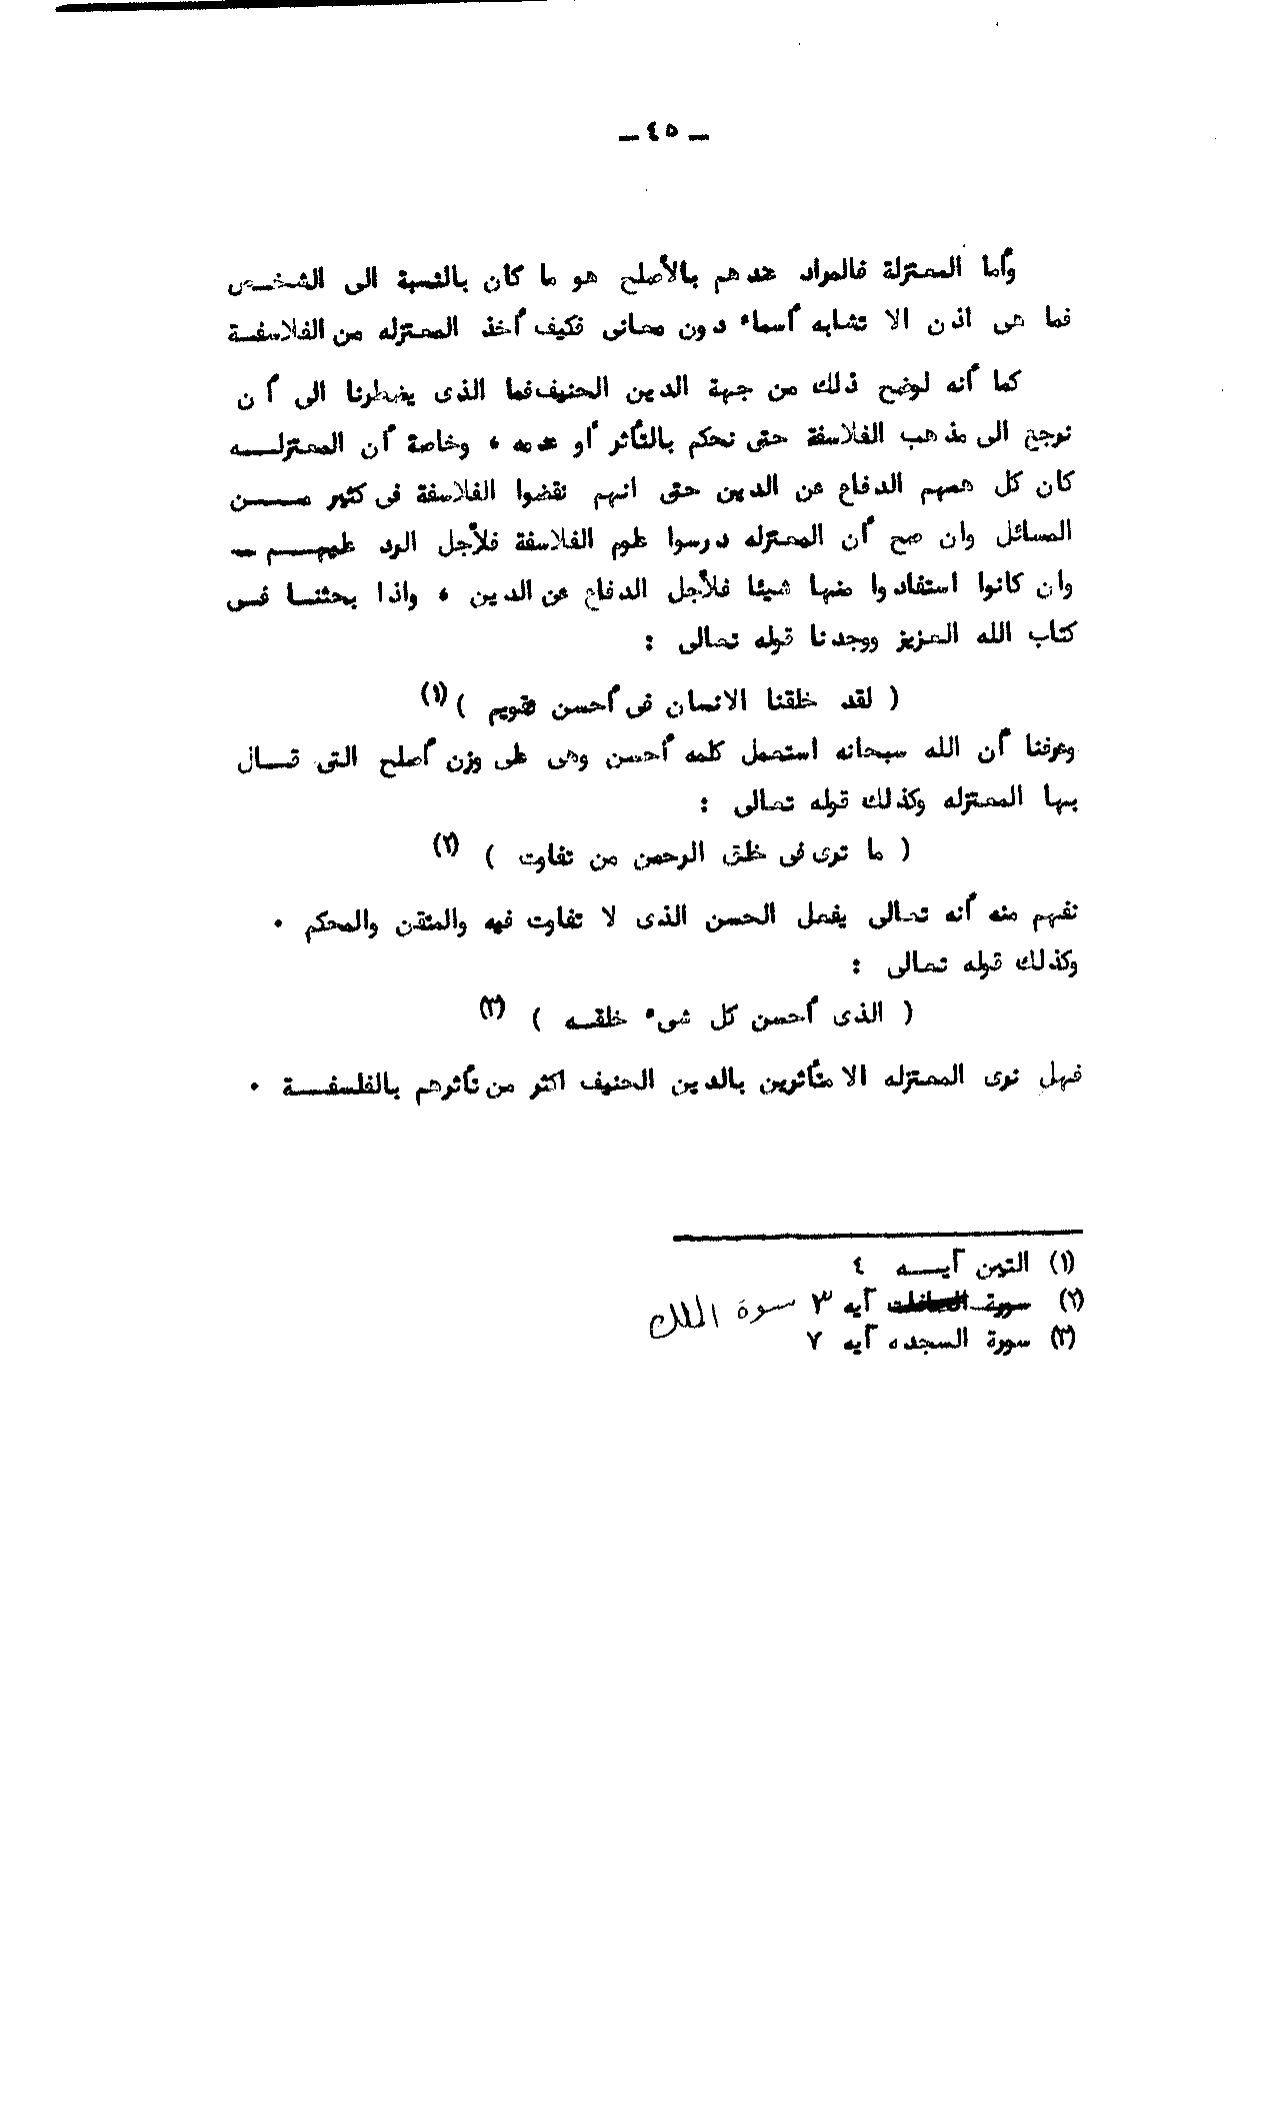 ـ ٤٥ ـ
وأما المعتزلة فالمراد عندهم بالأصلح هو ما كان بالنسبة الى الشخص
فما هى اذن الا تشابه أسماء دون معانى فكيف أخذ المعتزله من الفلاسفة
كما أنه لوضح ذلك من جهة الدين الحنيف فما الذى يضطرنا الى أن
نرجع الى مذهب الفلاسفة حتى نحكم بالتأثر أو عدمه ، وخاصة أن المعتزلـــه
كان كل همهم الدفاع عن الدين حتى انهم نقضوا الفلاسفة فى كثير مـــن
المسائل وان صح أن المعتزله درسوا علوم الفلاسفة فلأجل الرد عليهـــم ـ
وان كانوا استفادوا منها شيئا فلأجل الدفاع عن الدين ، واذا بحثنــا فى
كتاب الله العزيز ووجدنا قوله تعالى :
( لقد خلقنا الانسان فى أحسن تقويم ) (١)
وعرفنا أن الله سبحانه استعمل كلمه أحسن وهى على وزن أصلح التى قــال
بها المعتزله وكذلك قوله تعالى :
( ما ترى فى خلق الرحمن من تفاوت ) (٢)
نفهم منه أنه تعالى يفعل الحسن الذى لا تفاوت فيه والمتقن والمحكم ٠
وكذلك قوله تعالى :
( الذى أحسن كل شىء خلقــه ) (٣)
فهل نرى المعتزله الا متأثرين بالدين الحنيف اكثر من تأثرهم بالفلسفــة ٠
(١) التين آيــه ٤
(٢) سورة آيه ٣ سورة الملك
(٣) سورة السجده آيه ٧